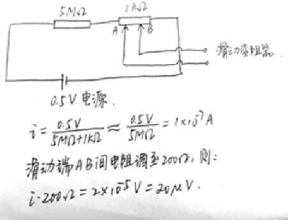 5MΩ 1kΩ
A B
滑动变阻器
0.5V 电源.
i = 0.5V / 5MΩ+1kΩ ≈ 0.5V / 5MΩ = 1×10⁻⁷A
滑动端AB间电阻调至200Ω, 则:
i·200Ω = 2×10⁻⁵V = 20μV.